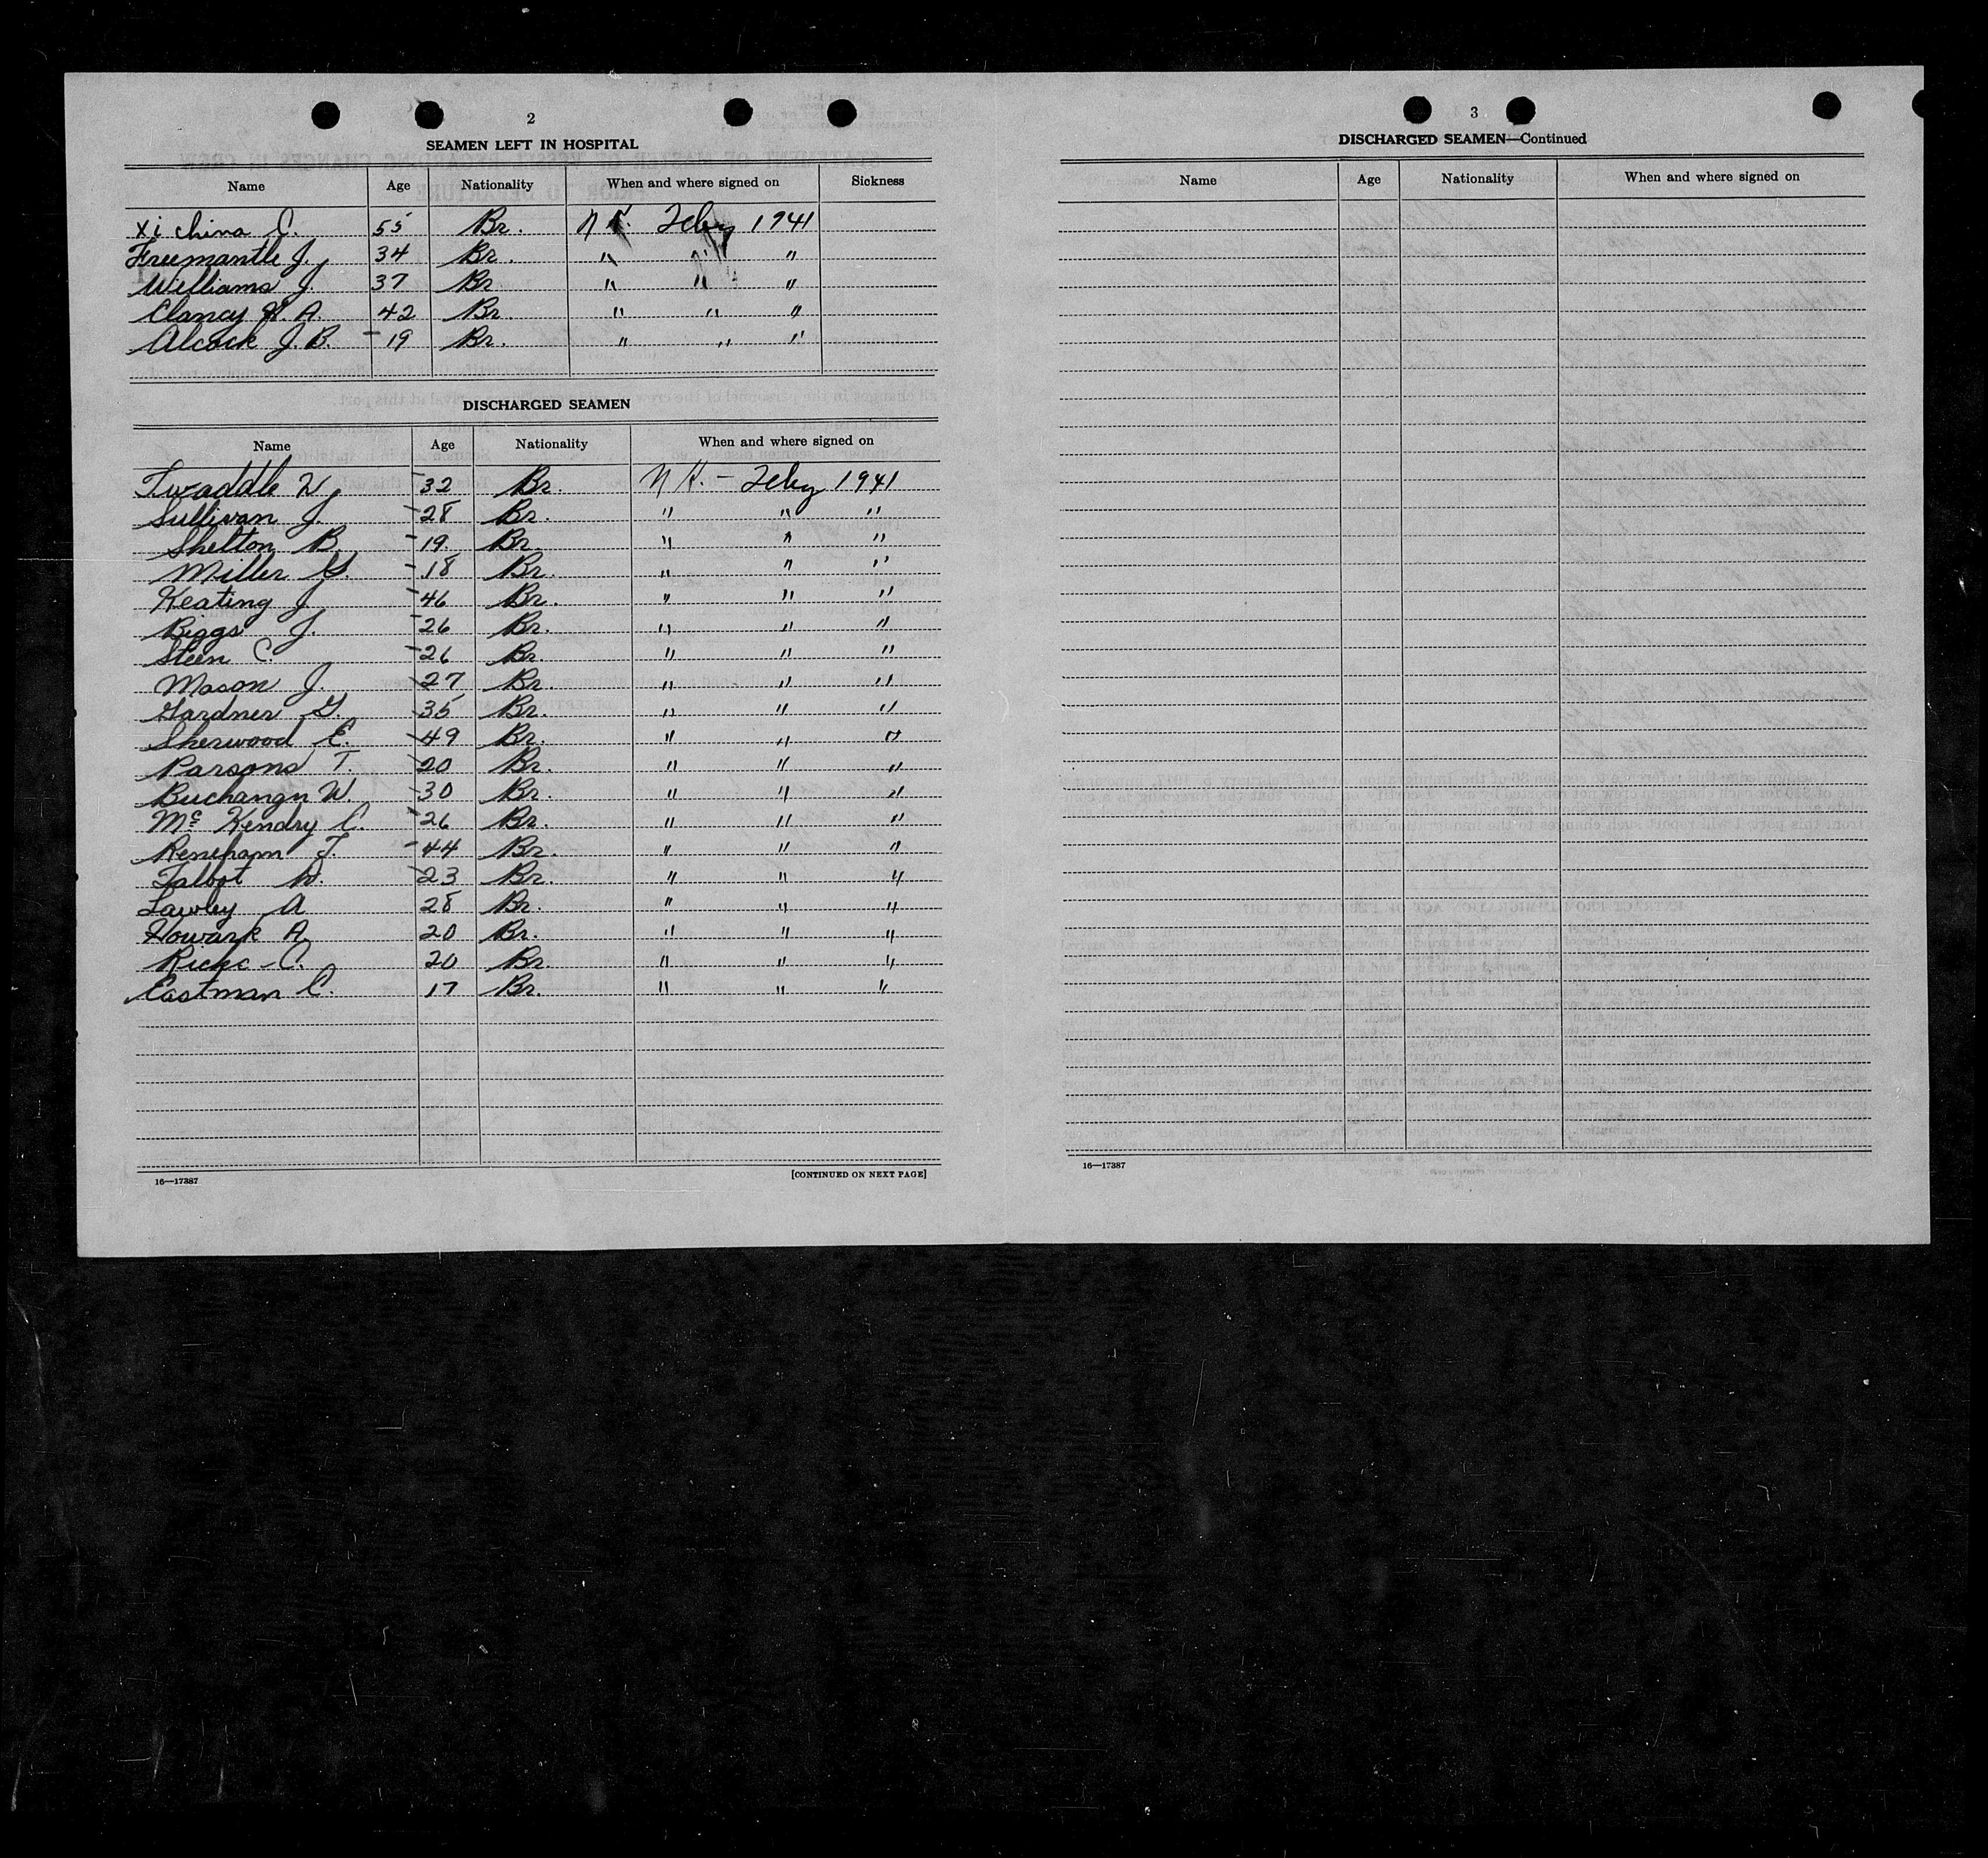 2
SEAMEN LEFT IN HOSPITAL
Name Age Nationality When and where signed on Sickness
Xichina C. 55 Br. N Y. Feby 1941
Freemantle J. 34 Br. " " "
Williams J. 37 Br. " " "
Clancy W. A. 42 Br. " " "
Alcock J. B. - 19 Br. " " "
DISCHARGED SEAMEN
Name Age Nationality When and where signed on
Twaddle W - 32 Br. N Y. - Feby 1941
Sullivan J. - 28 Br. " " "
Shelton B. - 19. Br " " "
Miller G. - 18 Br. " " "
Keating J - 46 Br. " " "
Biggs J. - 26 Br. " " "
Steen C. - 26 Br. " " "
Mason J. - 27 Br. " " "
Gardner G. - 35 Br. " " "
Sherwood E. - 49 Br. " " "
Parsons T. - 20 Br. " " "
Buchangn W. - 30 Br. " " "
Mc Kendry C. - 26 Br. " " "
T. - 44 Br. " " "
Talbot - 23 Br. " " "
Lawley A 28 Br. " " "
Howark A. 20 Br. " " "
C. 20 Br. " " "
Eastman C. 17 Br. " " "
16—17387
[CONTINUED ON NEXT PAGE]
3
DISCHARGED SEAMEN—Continued
Name Age Nationality When and where signed on
16—17387